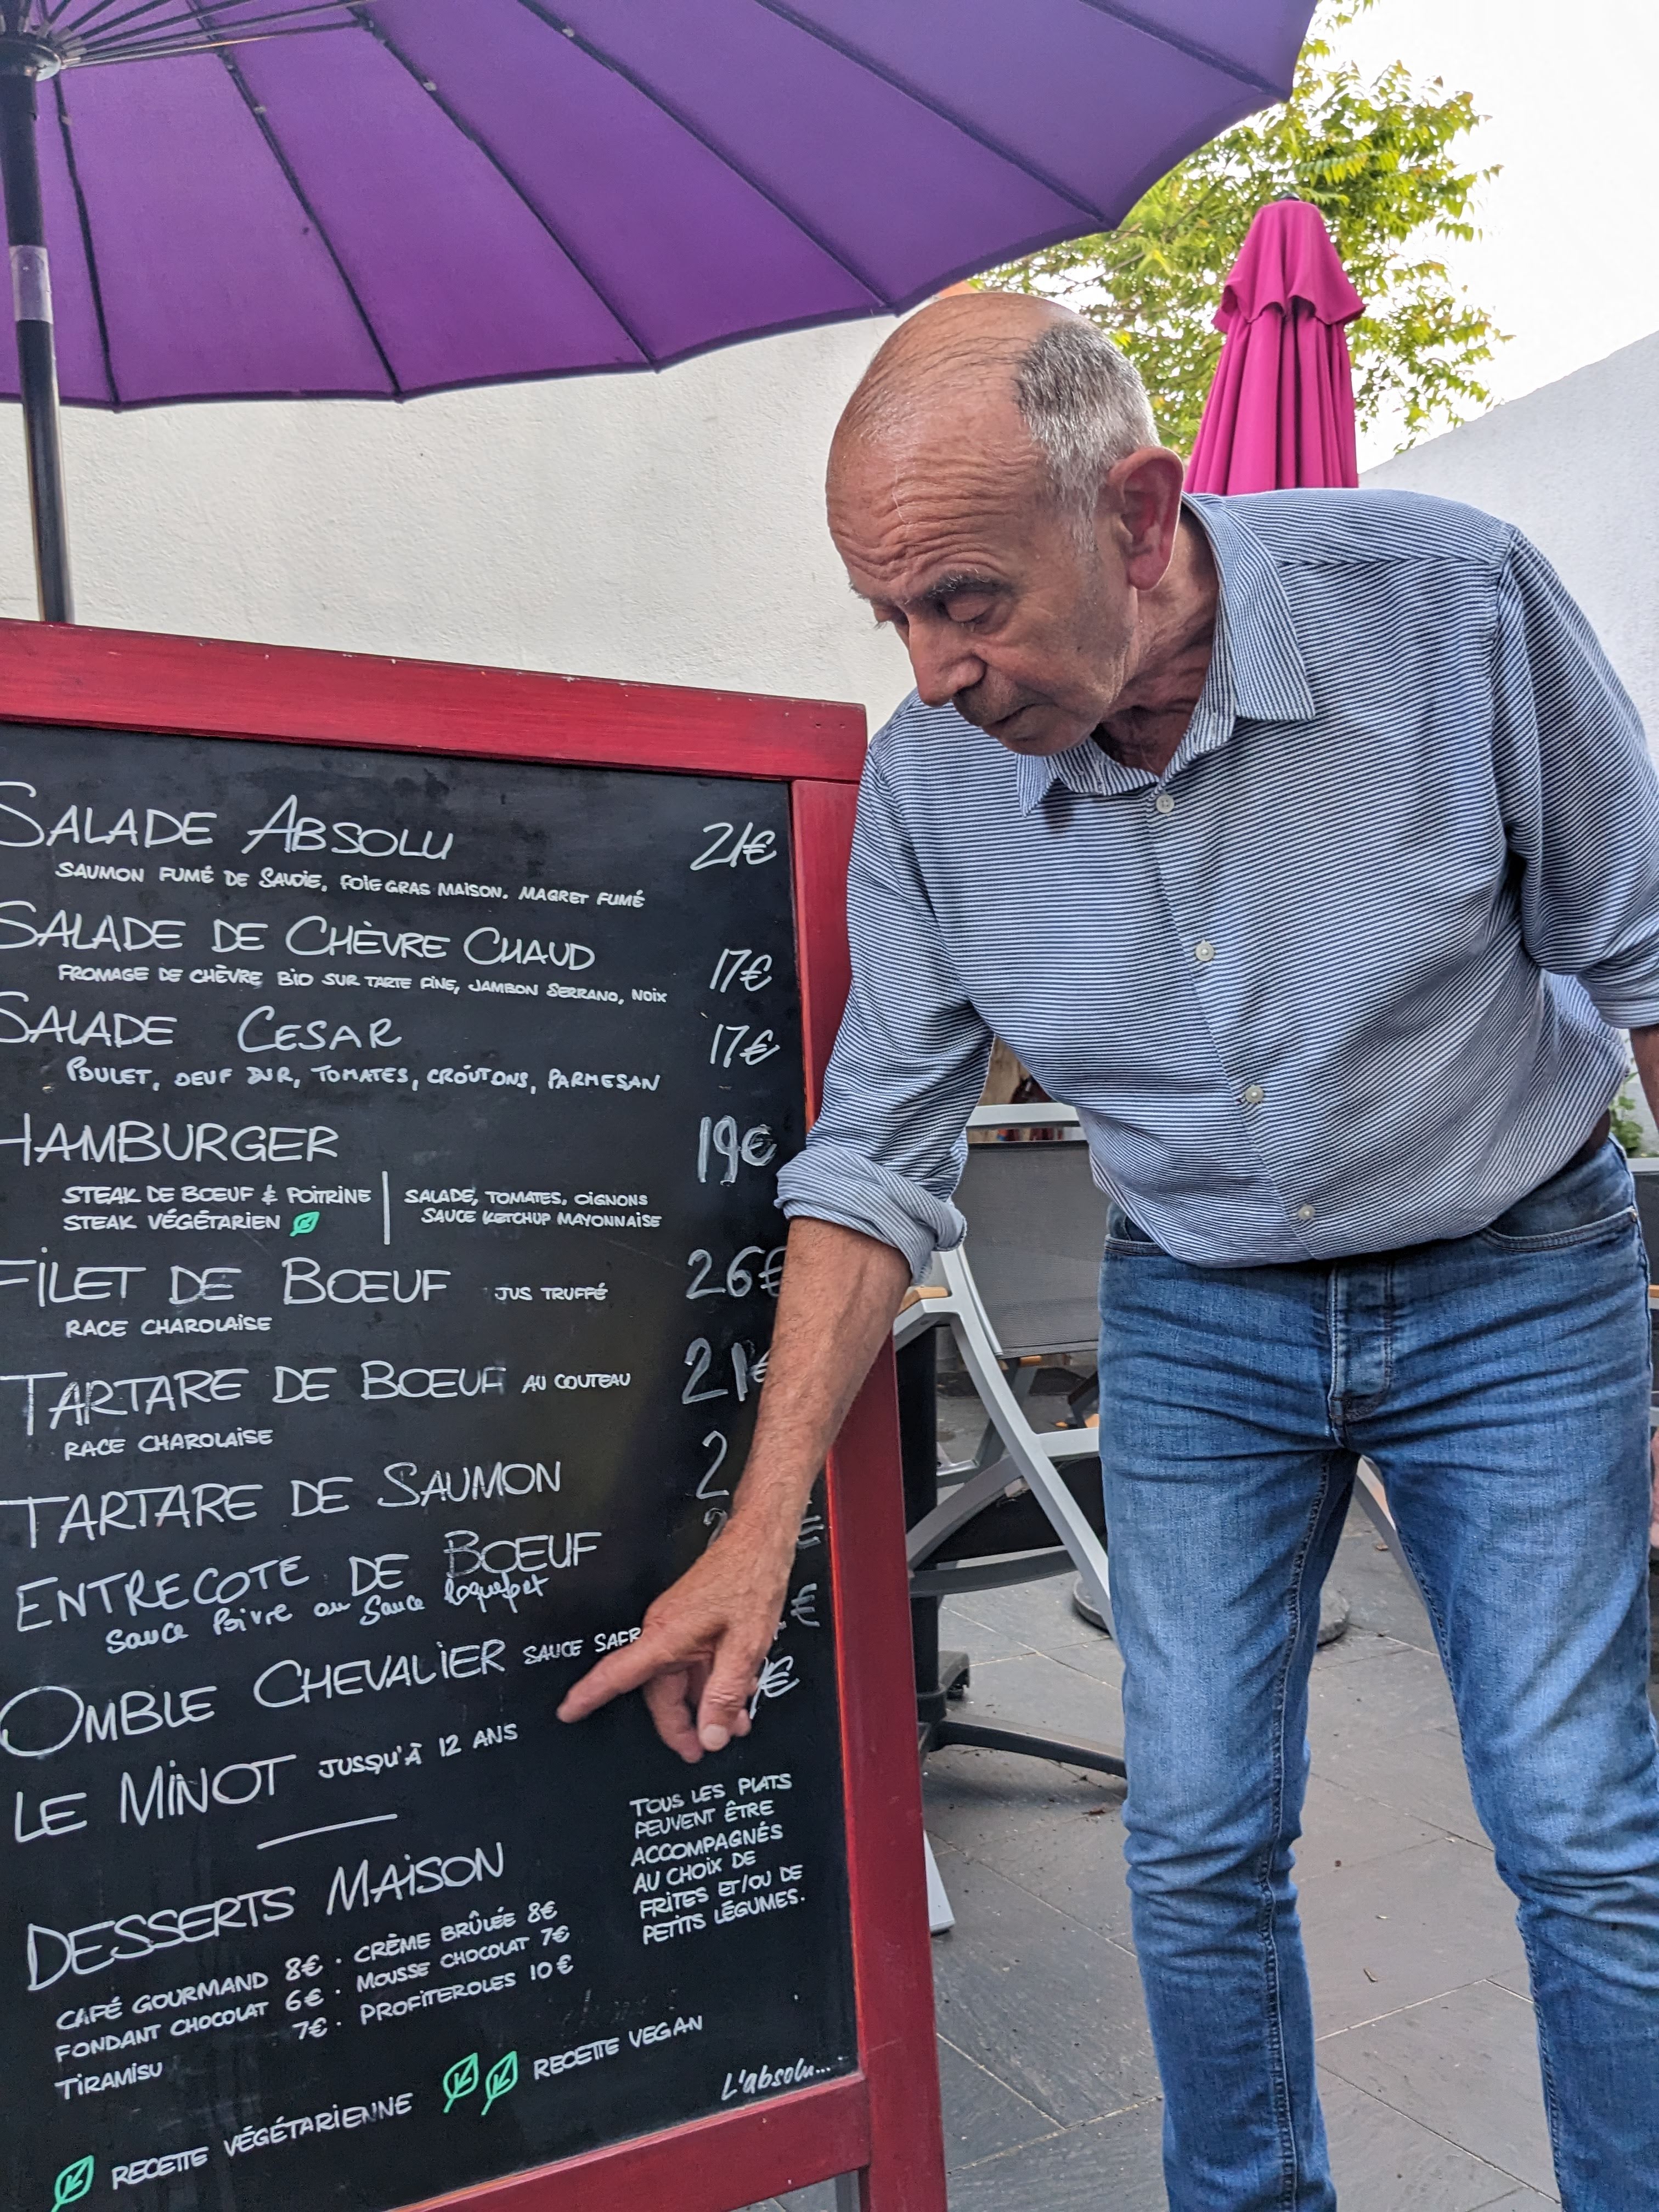 SALADE ABSOLU 21€
SAUMON FUMÉ DE SAVOIE, FOIE GRAS MAISON. MAGRET FUMÉ
SALADE DE CHÈVRE CHAUD 17€
FROMAGE DE CHÈVRE BIO SUR TARTE FINE, JAMBON SERRANO, NOIX
SALADE CESAR 17€
POULET, OEUF DUR, TOMATES, CROÛTONS, PARMESAN
HAMBURGER 19€
STEAK DE BŒUF & POITRINE
STEAK VÉGÉTARIEN
SALADE, TOMATES, OIGNONS
SAUCE KETCHUP MAYONNAISE
FILET DE BŒUF JUS TRUFFÉ 26€
RACE CHAROLAISE
TARTARE DE BŒUF AU COUTEAU 21€
RACE CHAROLAISE
TARTARE DE SAUMON 2
ENTRECOTE DE BŒUF €
Sauce Poivre ou Sauce Roquefort
OMBLE CHEVALIER SAUCE SAFR €
LE MINOT JUSQU'À 12 ANS €
TOUS LES PLATS
PEUVENT ÊTRE
ACCOMPAGNÉS
AU CHOIX DE
FRITES ET/OU DE
PETITS LÉGUMES.
DESSERTS MAISON
CAFÉ GOURMAND 8€ · CRÈME BRÛLÉE 8€
FONDANT CHOCOLAT 6€ · MOUSSE CHOCOLAT 7€
TIRAMISU 7€ · PROFITEROLES 10€
RECETTE VÉGÉTARIENNE RECETTE VEGAN
L'absolu...